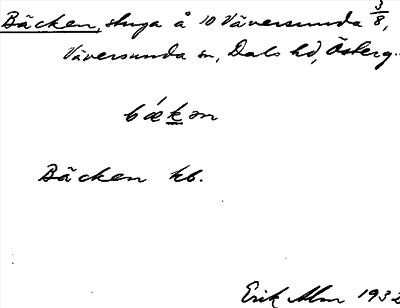 Bäcken, stuga å 10 Väversunda 3/8,
Väversunda sn, Dals hd, Österg.
bǽkən
Bäcken kb.
Erik Alm 193